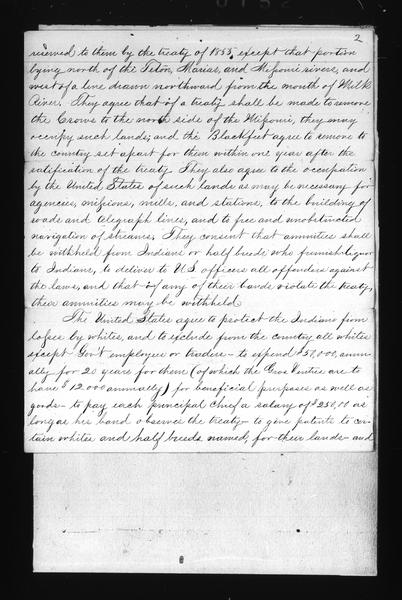 2
reserved to them by the treaty of 1855, except that portion
lying north of the Teton, Marias, and Missouri rivers, and
west of a line drawn northward from the mouth of Milk
River. They agree that if a treaty shall be made to remove
the Crows to the north side of the Missouri, they may
occupy such lands; and the Blackfeet agree to remove to
the country set apart for them within one year after the
ratification of the treaty. They also agree to the occupation
by the United States of such lands as may be necessary for
agencies, missions, mills, and stations, to the building of
roads and telegraph lines, and to free and unobstructed
navigation of streams; They consent that annuities shall
be withheld from Indians or half breeds who furnish liquor
to Indians, to deliver to U.S. officers all offenders against
the laws, and that if any of their bands violate the treaty,
their annuities may be withheld.
The United States agree to protect the Indians from
losses by whites, and to exclude from the country all whites
except Gov't employees or traders - to expend $50,000, annu-
ally for 20 years for them (of which the Gros Ventres are to
have $12.000 annually) for beneficial purposes as well as
goods - to pay each principal chief a salary of $250,00 as
long as his band observe the treaty - to give patents to cer-
tain whites and half breeds named, for their lands - and